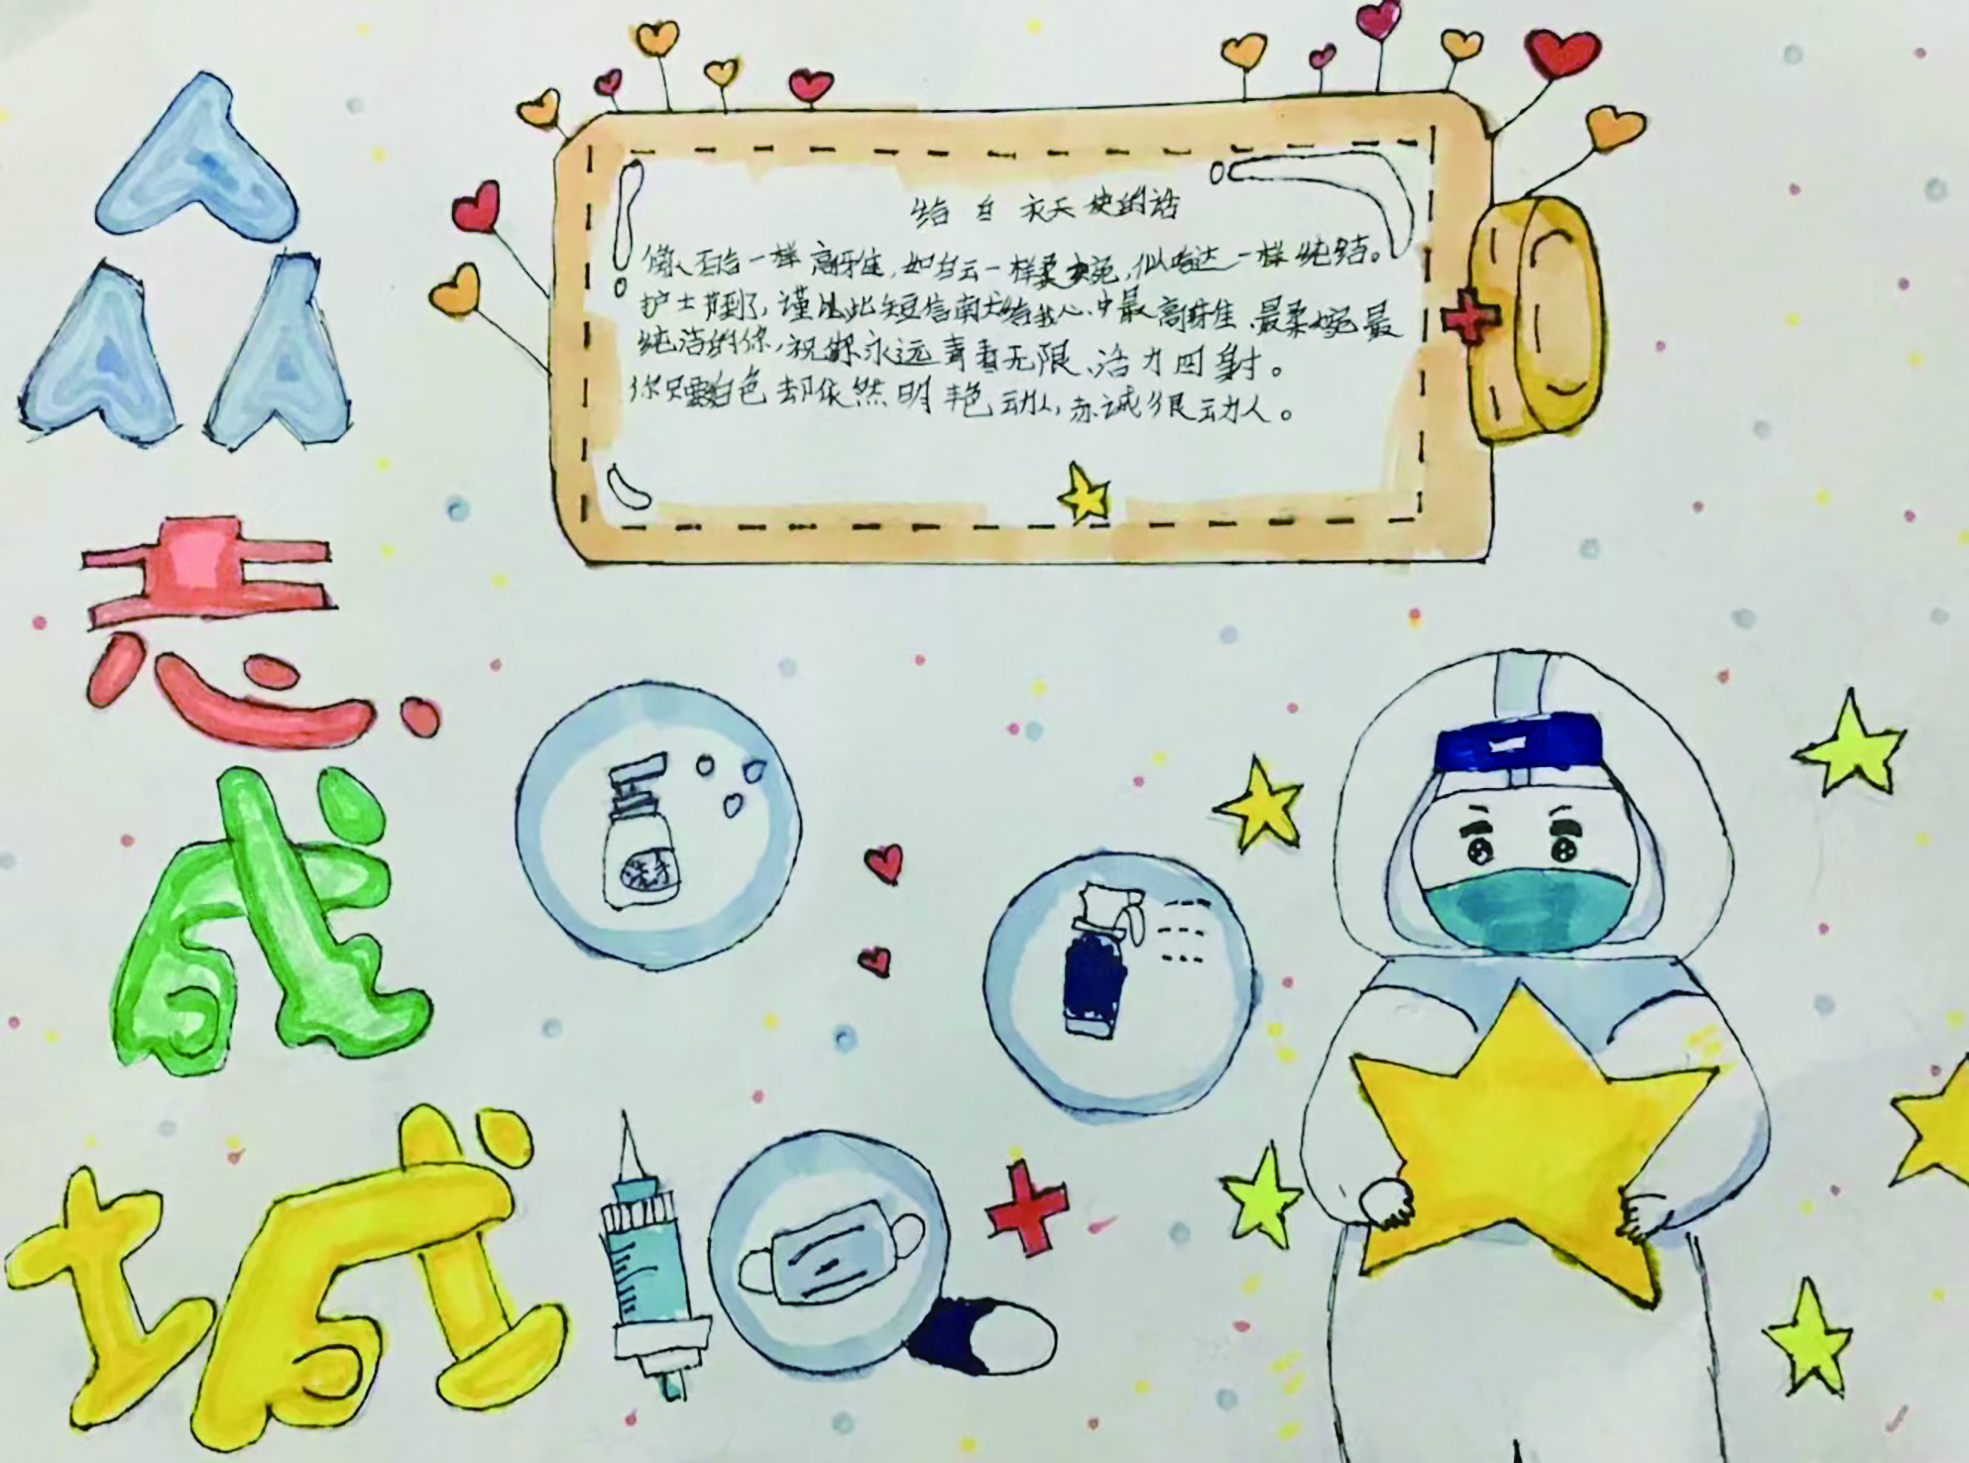 众
志
成
城
给白衣天使的话
像百合一样高雅,如白云一样柔婉,似哈达一样纯洁。
护士节到了,谨以此短信献给我心中最高雅、最柔婉、最
纯洁的你,祝你永远青春无限、活力四射。
你只要白色却依然明艳动人,赤诚很动人。
洗手